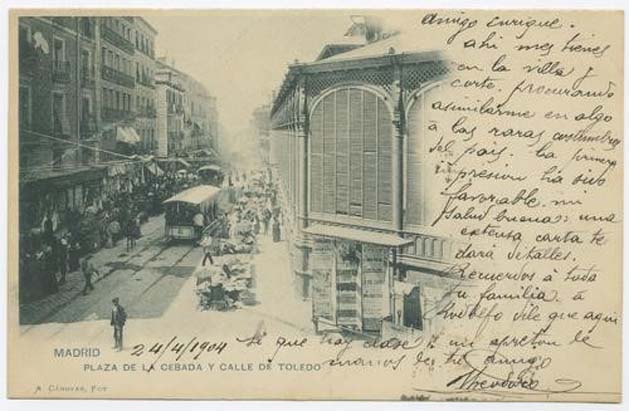 amigo enrique.
ahi mes tienes
en la villa y
corte. procurando
asimilarme en algo
a las raras costumbres
del pais. la primera
ha sido
favorable. mi
salud buena: una
extensa carta te
dará detalles.
Recuerdos á toda
tu familia. á
Rodolfo dile que aqui
si que hay clase y un apreton de
manos de tu amigo
Theodoro
24/4/1904
MADRID
PLAZA DE LA CEBADA Y CALLE DE TOLEDO
A. Cánovas, Fot